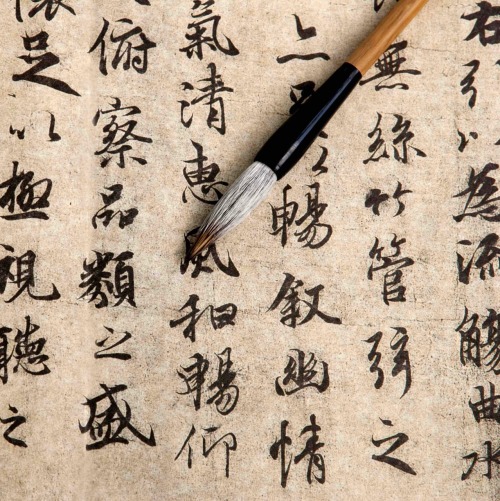 右引以為流觴曲水
無絲竹管弦之
亦足以暢叙幽情
氣清惠風和暢仰
俯察品類之盛
懷足以極視聽之